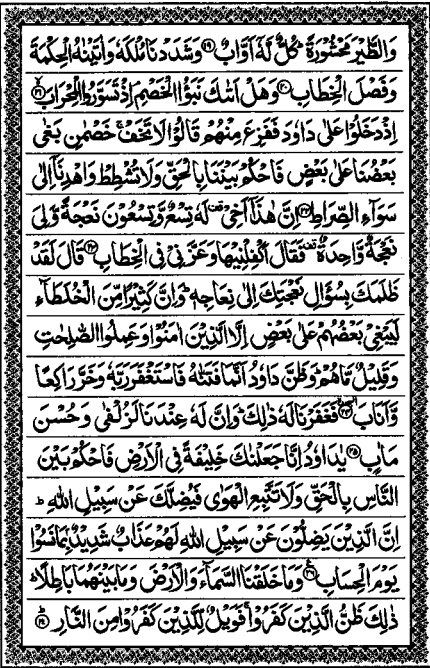 وَالطَّيْرَ مَحْشُوْرَةً ؕ كُلٌّ لَّهٗۤ اَوَّابٌ ⑲ وَشَدَدْنَا مُلْكَهٗ وَاٰتَيْنٰهُ الْحِكْمَةَ
وَفَصْلَ الْخِطَابِ ⑳ وَهَلْ اَتٰىكَ نَبَؤُا الْخَصْمِ ۘ اِذْ تَسَوَّرُوا الْمِحْرَابَ ㉑
اِذْ دَخَلُوْا عَلٰى دَاوٗدَ فَفَزِعَ مِنْهُمْ قَالُوْا لَا تَخَفْ ۚ خَصْمٰنِ بَغٰى
بَعْضُنَا عَلٰى بَعْضٍ فَاحْكُمْ بَيْنَنَا بِالْحَقِّ وَلَا تُشْطِطْ وَاهْدِنَاۤ اِلٰى
سَوَآءِ الصِّرَاطِ ㉒ اِنَّ هٰذَاۤ اَخِيْ ۟ لَهٗ تِسْعٌ وَّتِسْعُوْنَ نَعْجَةً وَّلِيَ
نَعْجَةٌ وَّاحِدَةٌ ۟ فَقَالَ اَكْفِلْنِيْهَا وَعَزَّنِيْ فِى الْخِطَابِ ㉓ قَالَ لَقَدْ
ظَلَمَكَ بِسُؤَالِ نَعْجَتِكَ اِلٰى نِعَاجِهٖ ؕ وَاِنَّ كَثِيْرًا مِّنَ الْخُلَطَآءِ
لَيَبْغِيْ بَعْضُهُمْ عَلٰى بَعْضٍ اِلَّا الَّذِيْنَ اٰمَنُوْا وَعَمِلُوا الصّٰلِحٰتِ
وَقَلِيْلٌ مَّا هُمْ ؕ وَظَنَّ دَاوٗدُ اَنَّمَا فَتَنّٰهُ فَاسْتَغْفَرَ رَبَّهٗ وَخَرَّ رَاكِعًا
وَّاَنَابَ ㉔ فَغَفَرْنَا لَهٗ ذٰلِكَ ؕ وَاِنَّ لَهٗ عِنْدَنَا لَزُلْفٰى وَحُسْنَ
مَاٰبٍ ㉕ يٰدَاوٗدُ اِنَّا جَعَلْنٰكَ خَلِيْفَةً فِى الْاَرْضِ فَاحْكُمْ بَيْنَ
النَّاسِ بِالْحَقِّ وَلَا تَتَّبِعِ الْهَوٰى فَيُضِلَّكَ عَنْ سَبِيْلِ اللّٰهِ ؕ
اِنَّ الَّذِيْنَ يَضِلُّوْنَ عَنْ سَبِيْلِ اللّٰهِ لَهُمْ عَذَابٌ شَدِيْدٌۢ بِمَا نَسُوْا
يَوْمَ الْحِسَابِ ㉖ وَمَا خَلَقْنَا السَّمَآءَ وَالْاَرْضَ وَمَا بَيْنَهُمَا بَاطِلًا ؕ
ذٰلِكَ ظَنُّ الَّذِيْنَ كَفَرُوْا ۚ فَوَيْلٌ لِّلَّذِيْنَ كَفَرُوْا مِنَ النَّارِ ㉗